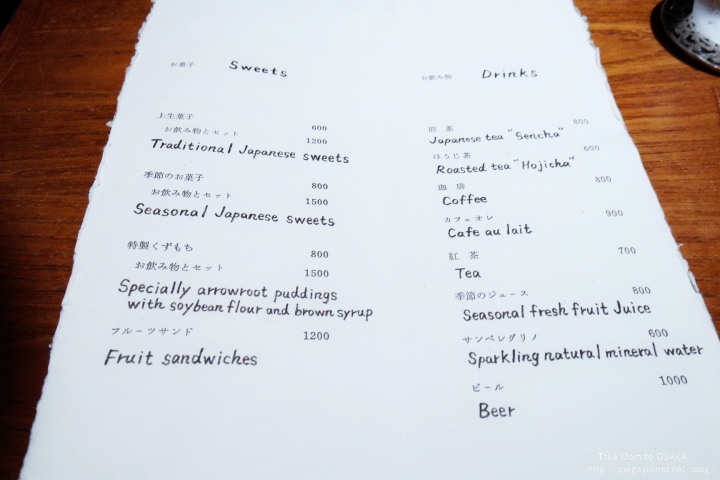 お菓子 Sweets
上生菓子 600
お飲み物とセット 1200
Traditional Japanese sweets
季節のお菓子 800
お飲み物とセット 1500
Seasonal Japanese sweets
特製くずもち 800
お飲み物とセット 1500
Specially arrowroot puddings
with soybean flour and brown syrup
フルーツサンド 1200
Fruit sandwiches
お飲み物 Drinks
煎茶 800
Japanese tea "Sencha"
ほうじ茶 600
Roasted tea "Hojicha"
珈琲 800
Coffee
カフェオレ 900
Cafe au lait
紅茶 700
Tea
季節のジュース 800
Seasonal fresh fruit Juice
サンペレグリノ 600
Sparkling natural mineral water
ビール 1000
Beer
Take Mom to OSAKA